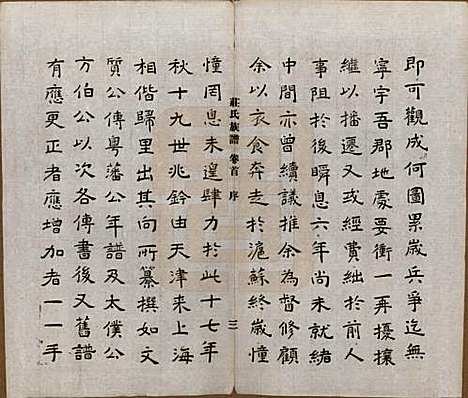 即可觀成何圖累歲兵爭迄無
寧宇吾郡地處要衝一再擾攘
繼以播遷又或經費絀於前人
事阻於後瞬息六年尚未就緒
中間亦曾續議推余為督修顧
余以衣食奔走於滬蘇終歲憧
莊氏族譜 卷首 序 三
憧罔息未遑肆力於此十七年
秋十九世兆鈐由天津來上海
相偕歸里出其向所纂撰如文
質公傳粵藩公年譜及太僕公
方伯公以次各傳書後又舊譜
有應更正者應增加者一一手